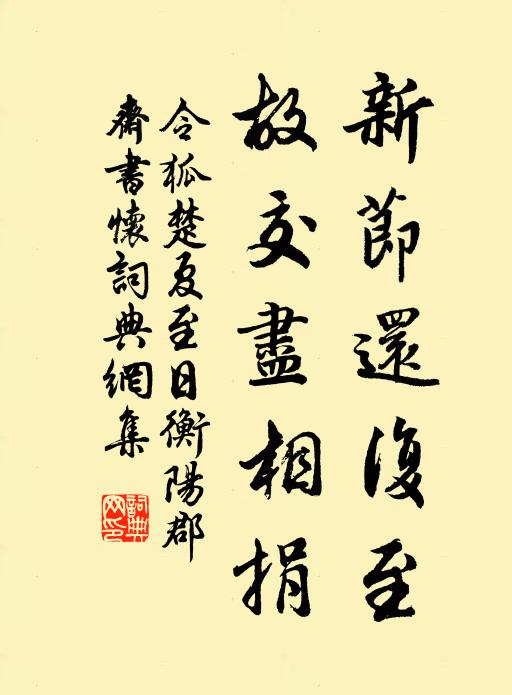 新節還復至
故交盡相捐
令狐楚夏至日衡陽郡
齋書懷詞典網集
詞典網印